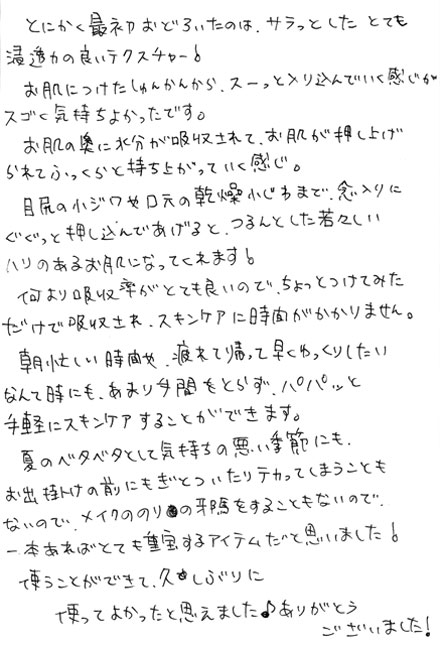 とにかく最初おどろいたのは、サラっとした とても
浸透力の良いテクスチャー!
お肌につけたしゅんかんから、スーっと入り込んでいく感じが
スゴく気持ちよかったです。
お肌の奥に水分が吸収されて、お肌が押し上げ
られてふっくらと持ち上がっていく感じ。
目尻の小ジワや口元の乾燥小じわまで、念入りに
ぐぐっと押し込んであげると、つるんとした若々しい
ハリのあるお肌になってくれます!
何より吸収率がとても良いので、ちょっとつけてみた
だけで吸収され、スキンケアに時間がかかりません。
朝忙しい時間や、疲れて帰って早くゆっくりしたい
なんて時にも、あまり手間をとらず、パパッと
手軽にスキンケアすることができます。
夏のベタベタとして気持ちの悪い季節にも、
お出掛けの前にもぎとついたりテカってしまうことも
ないので、メイクののりの邪魔をすることもないので、
一本あればとても重宝するアイテムだと思いました!
使うことができて、久しぶりに
使ってよかったと思えました♪ありがとう
ございました!